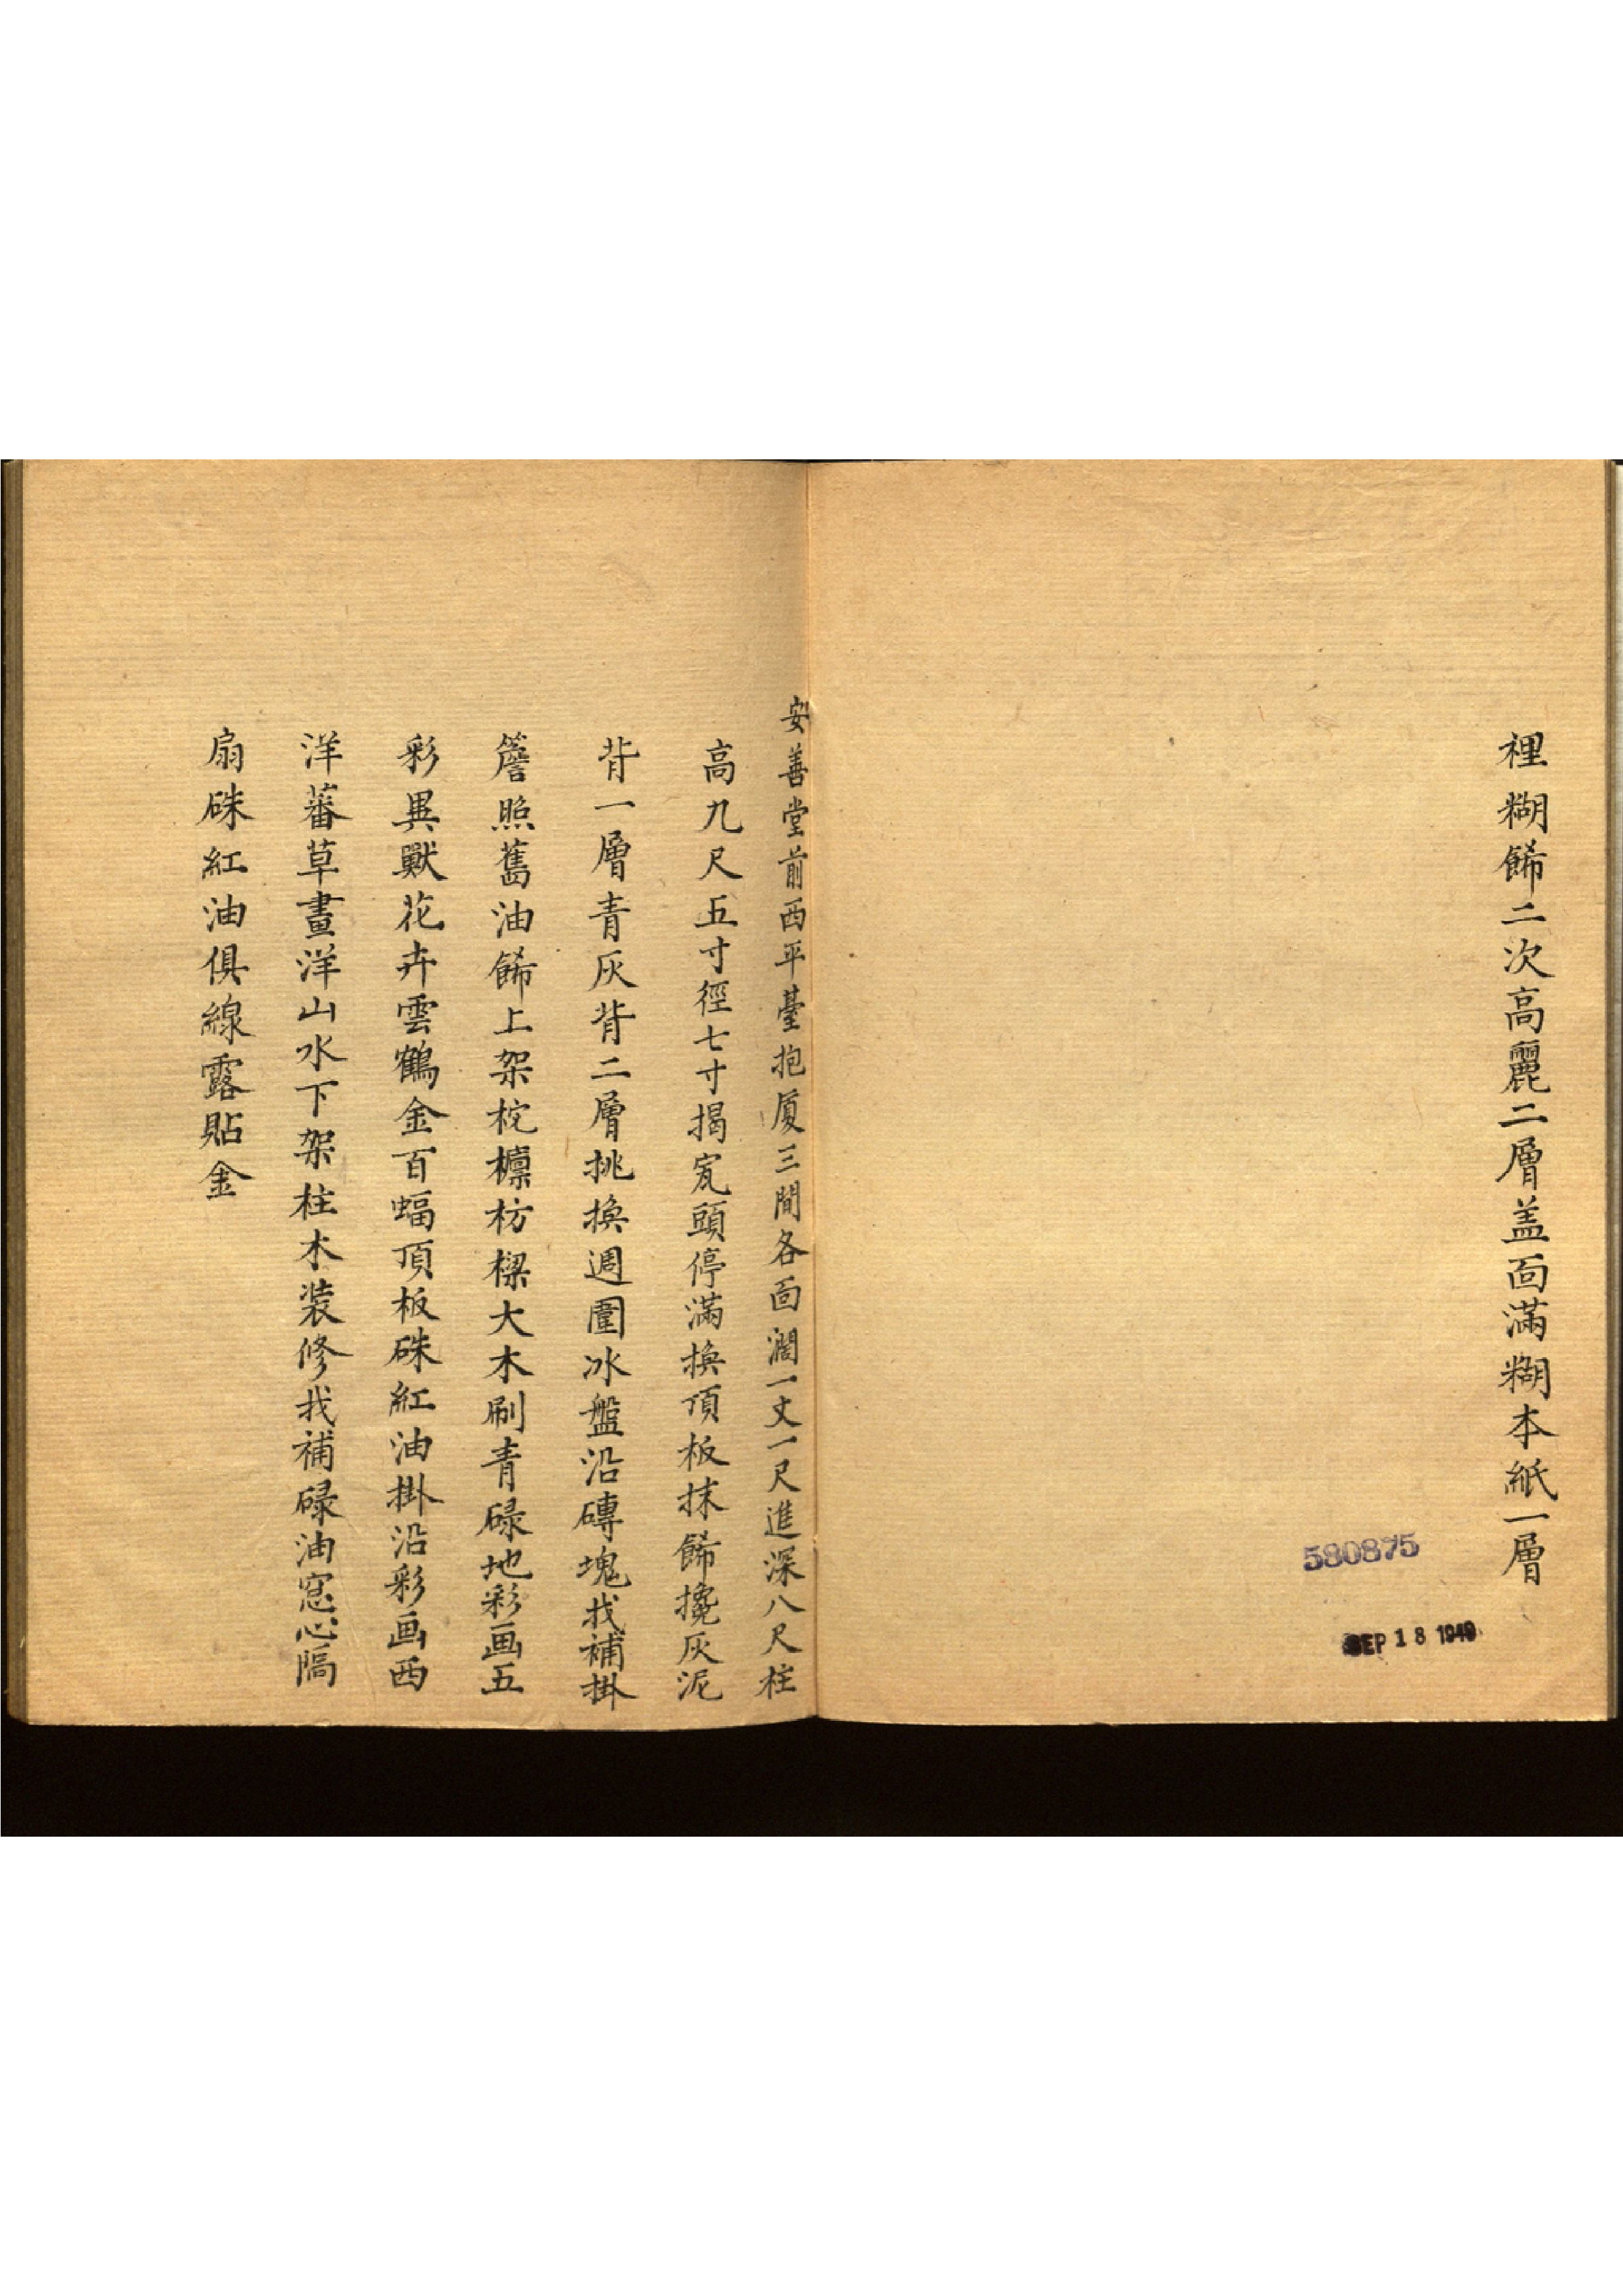 裡糊餙二次高麗二層盖面滿糊本紙一層
580875
SEP 18 1949
安善堂前西平臺抱厦三間各面濶一丈一尺進深八尺柱
高九尺五寸徑七寸揭瓦頭停滿換頂板抹餙攙灰泥
背一層青灰背二層挑換週圍冰盤沿磚塊找補掛
簷照舊油餙上架柁檩枋樑大木刷青碌地彩画五
彩異獸花卉雲鶴金百蝠頂板硃紅油掛沿彩画西
洋蕃草畫洋山水下架柱木裝修找補碌油窓心隔
扇硃紅油俱線露貼金